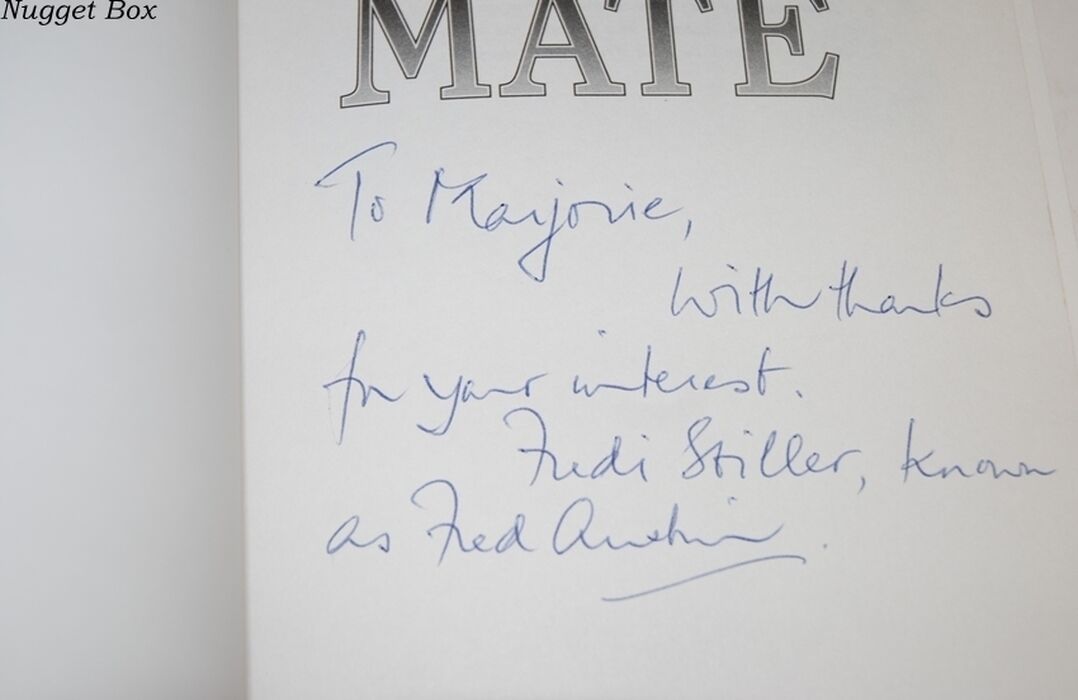 Nugget Box
MATE
To Marjorie,
With thanks
for your interest.
Fredi Stiller, known
as Fred Austin.